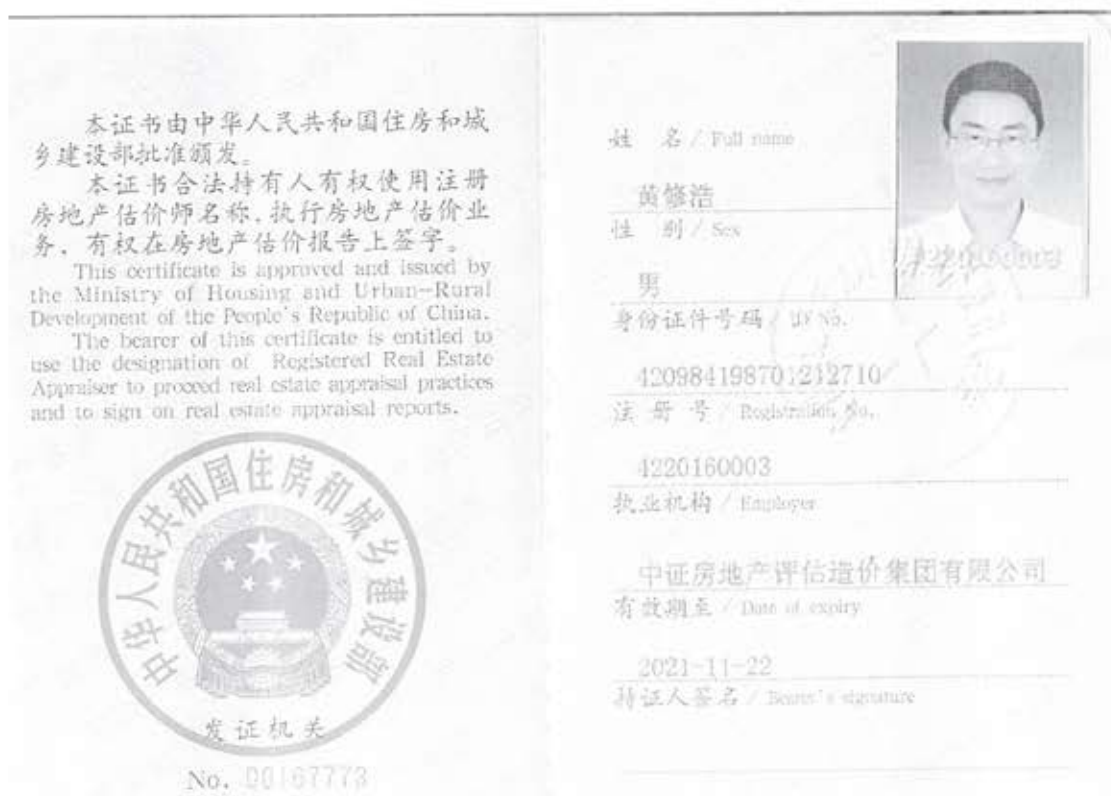 本证书由中华人民共和国住房和城
乡建设部批准颁发。
本证书合法持有人有权使用注册
房地产估价师名称，执行房地产估价业
务，有权在房地产估价报告上签字。
This certificate is approved and issued by
the Ministry of Housing and Urban-Rural
Development of the People's Republic of China.
The bearer of this certificate is entitled to
use the designation of Registered Real Estate
Appraiser to proceed real estate appraisal practices
and to sign on real estate appraisal reports.
中华人民共和国住房和城乡建设部
发证机关
No. 00167773
姓 名 / Full name
黄修浩
性 别 / Sex
男
身份证件号码 / ID No.
420984198701212710
注 册 号 / Registration No.
4220160003
执业机构 / Employer
中证房地产评估造价集团有限公司
有效期至 / Date of expiry
2021-11-22
持证人签名 / Bearer's signature
4220160003